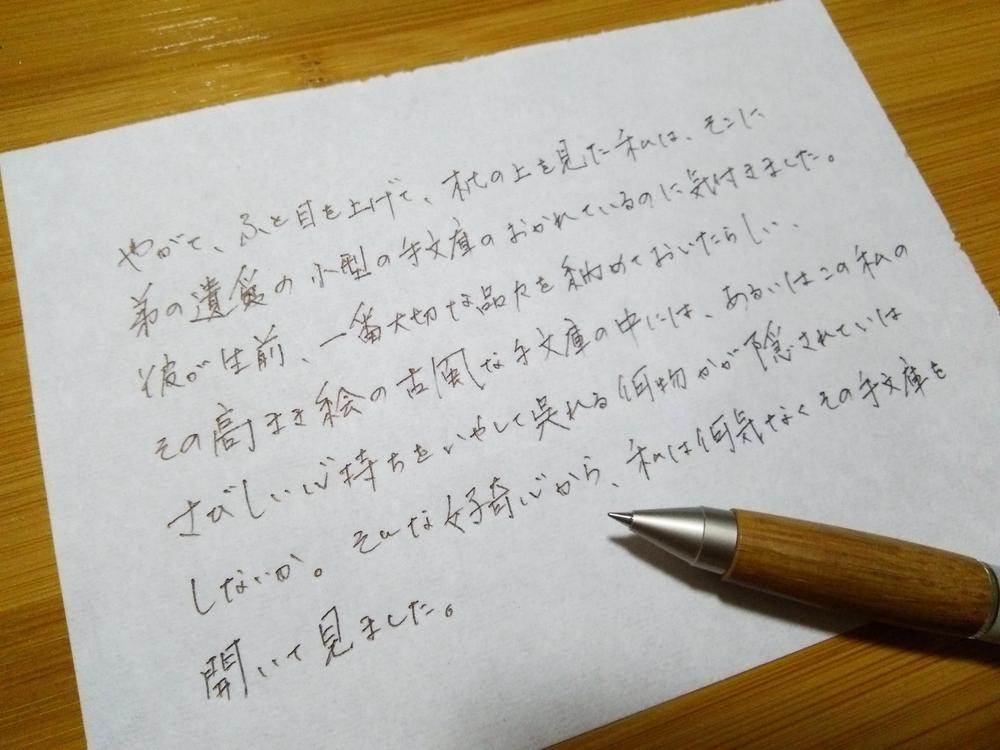 やがて、ふと目を上げて、机の上を見た私は、そこに
弟の遺愛の小型の手文庫のおかれているのに気付きました。
彼が生前、一番大切な品々を納めておいたらしい、
その高まき絵の古風な手文庫の中には、あるいはこの私の
さびしい心持ちをいやして呉れる何物かが隠されていは
しないか。そんな好奇心から、私は何気なくその手文庫を
開いて見ました。